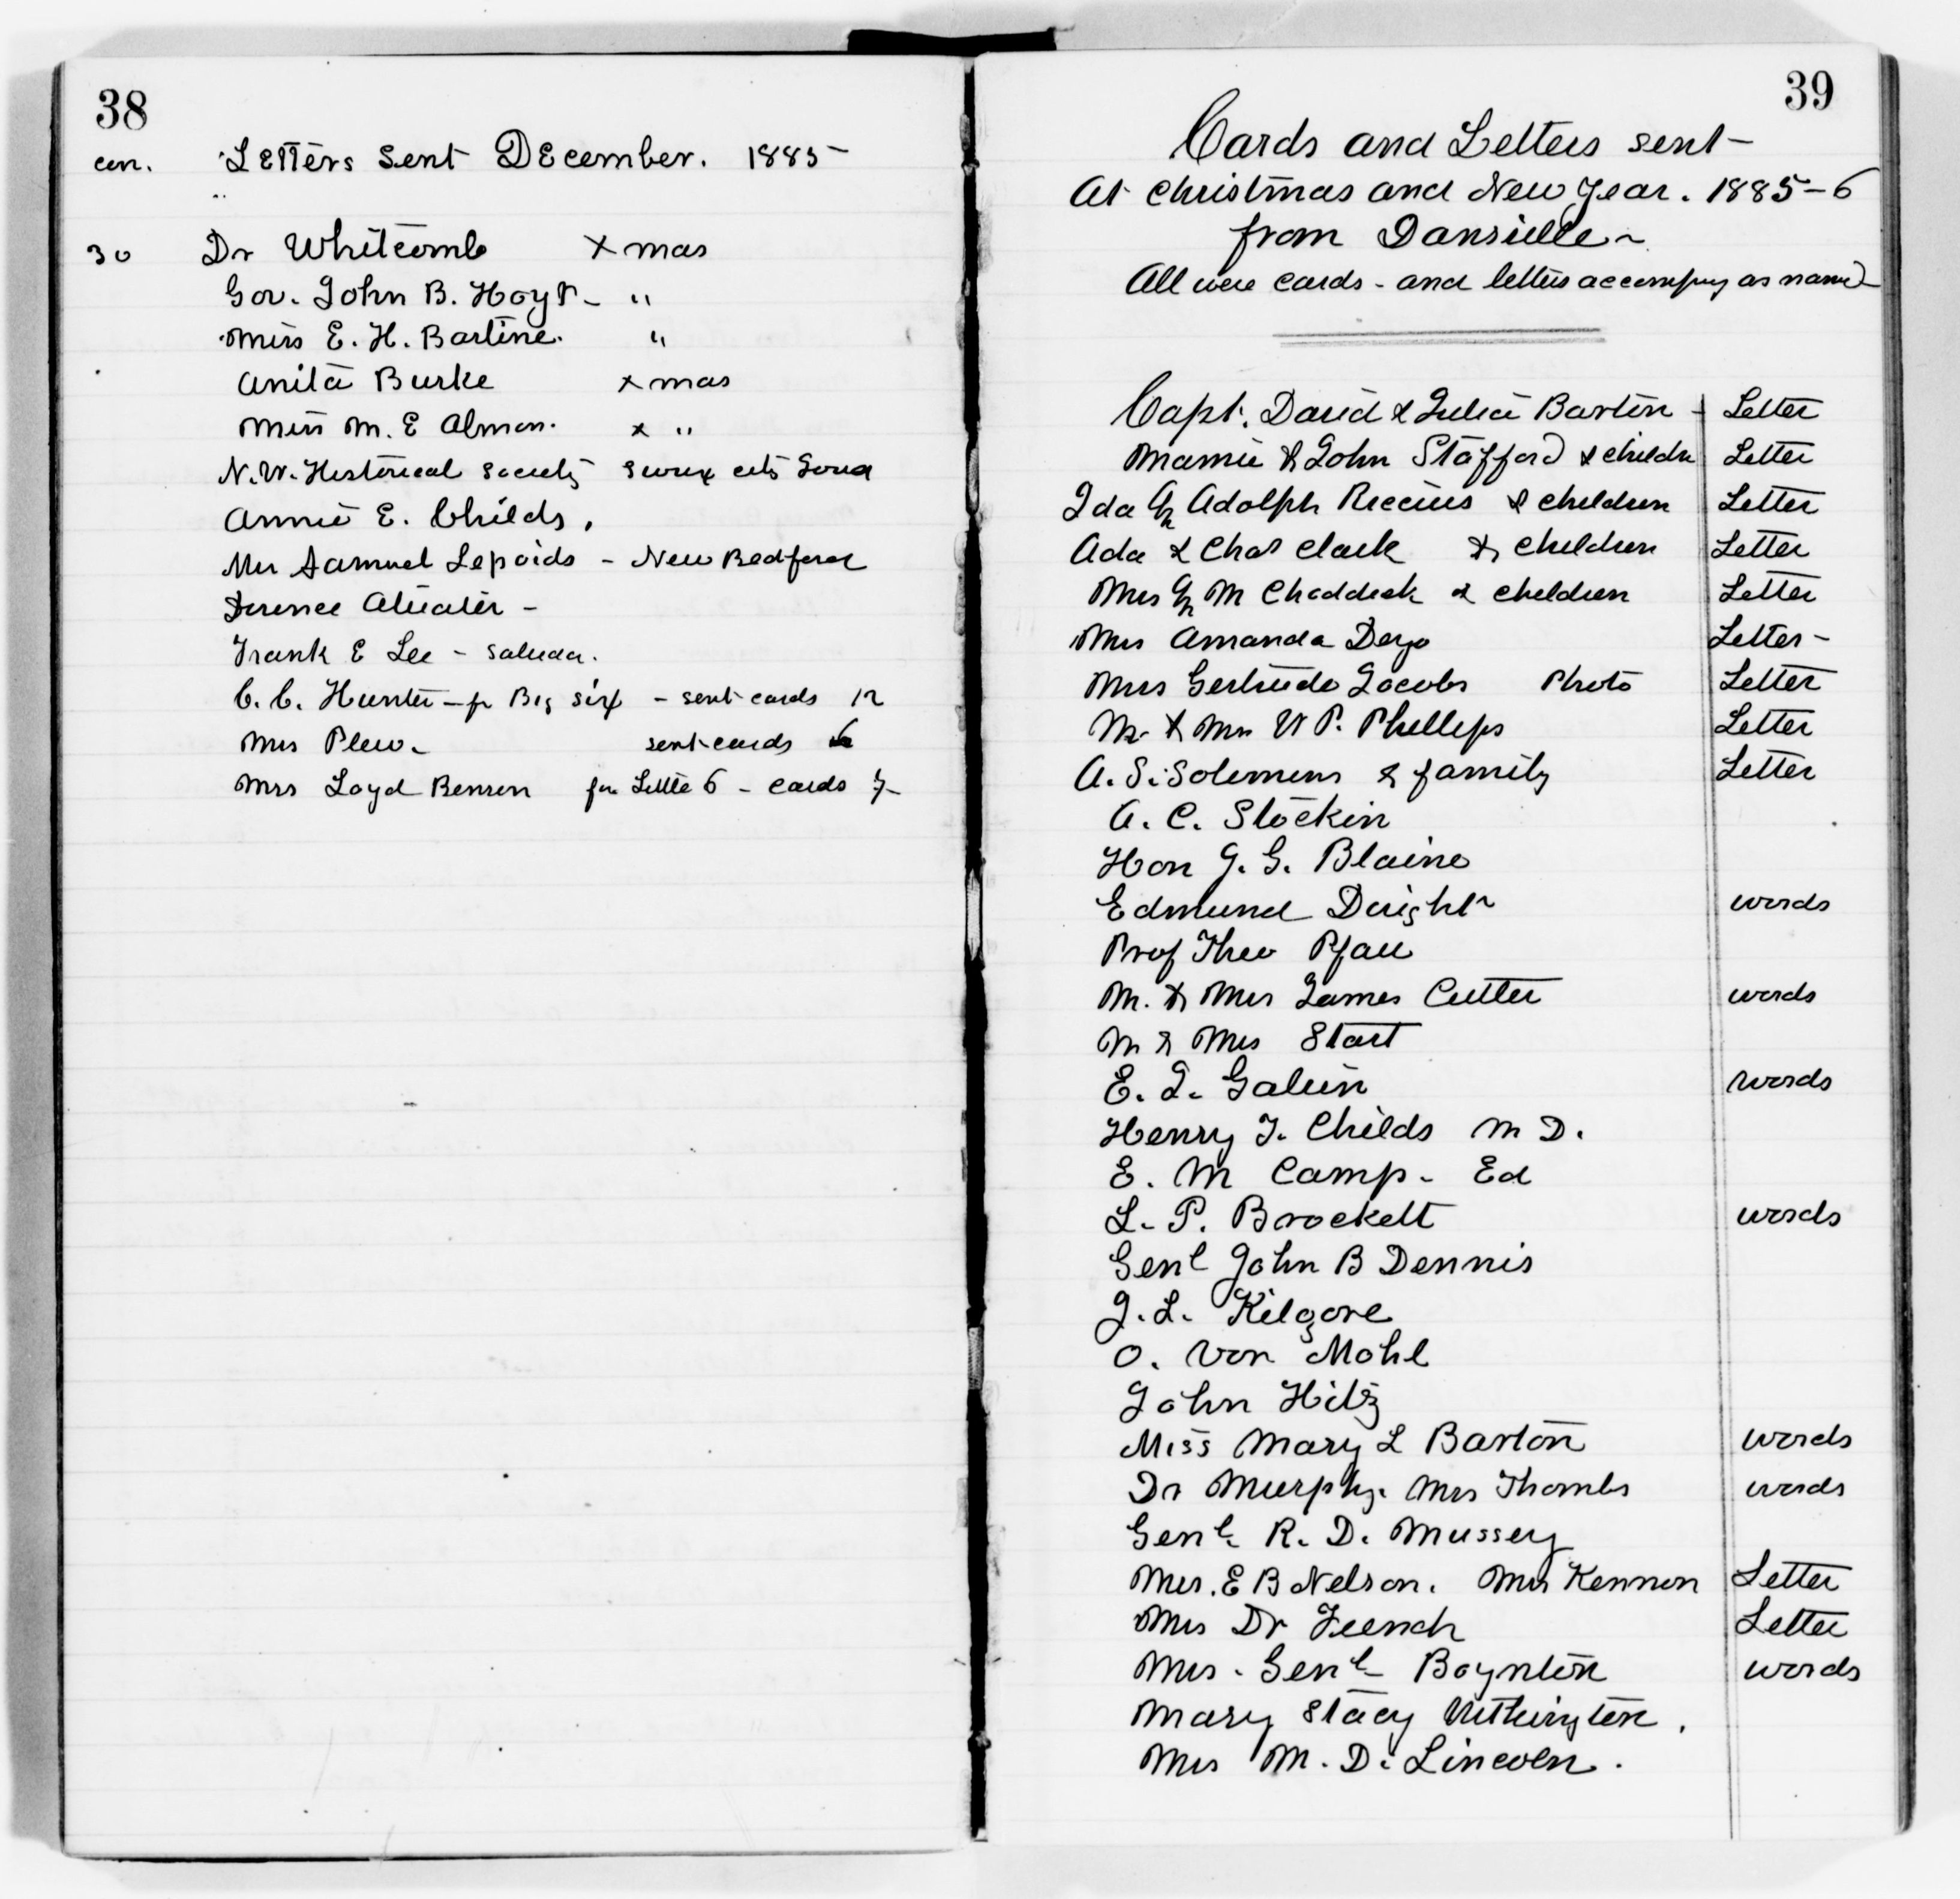 38
con. Letters Sent December. 1885
30 Dr Whitcomb Xmas
Gov. John B. Hoyt - "
Miss E. H. Bartine. "
Anita Burke xmas
Miss M. E Almon. x "
N. W. Historical Society Sioux city Iowa
Annie E. Childs,
Mrs Samuel - New Bedford
Dorence Atwater -
Frank E Lee - Saluda.
C. C. Hunter - for Big six - sent cards 12
Mrs Plew - sent cards 6
Mrs Loyd Benson for Little 6 - cards 7
39
Cards and Letters sent -
At Christmas and New Year. 1885-6
from Dansville -
All were cards - and letters accompany as named
Capt. David & Julia Barton - Letter
Mamie & John Stafford & childn Letter
Ida & Adolph Riccius & children Letter
Ada & Chas Clark & children Letter
Mrs & M Chaddick & children Letter
Mrs Amanda Deyo Letter -
Mrs Gertrude Jacobs Photo Letter
Mr. & Mrs W P. Phillips Letter
A. S. Solomons & family Letter
A. C. Stockin
Hon J. G. Blaine
Edmund Dwight words
Prof Theo Pfau
M. & Mrs James Cutter words
M & Mrs Start
E. J. Galvin words
Henry T. Childs M D.
E. M Camp - Ed
L. P. Brockett words
Genl John B Dennis
J. L. Kilgore
O. Von Mohl
John Hitz
Miss Mary L Barton words
Dr Murphy. Mrs Thombs words
Genl. R. D. Mussey
Mrs. E B Nelson. Mrs Kennon Letter
Mrs Dr French Letter
Mrs. Genl Boynton words
Mary Stacy Withington.
Mrs M. D. Lincoln.